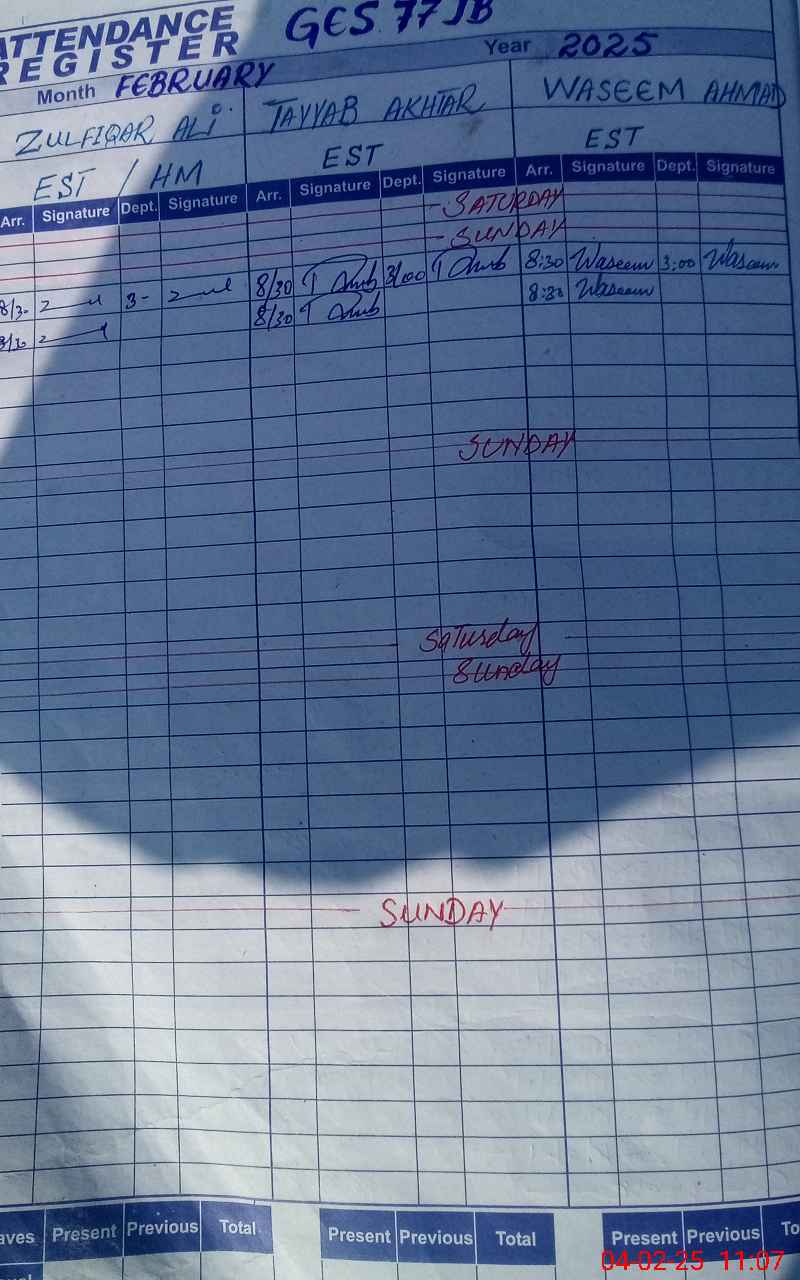 ATTENDANCE REGISTER
GES 77 JB
Month FEBRUARY Year 2025
ZULFIQAR ALI TAYYAB AKHTAR WASEEM AHMAD
EST / HM EST EST
Arr. Signature Dept. Signature Arr. Signature Dept. Signature Arr. Signature Dept. Signature
SATURDAY
SUNDAY
8/30 3- 8/30 3/00 8:30 Waseem 3:00 Waseem
8/30 8/30 8:30 Waseem
SUNDAY
Saturday
Sunday
SUNDAY
aves Present Previous Total Present Previous Total Present Previous To
04-02-25 11:07